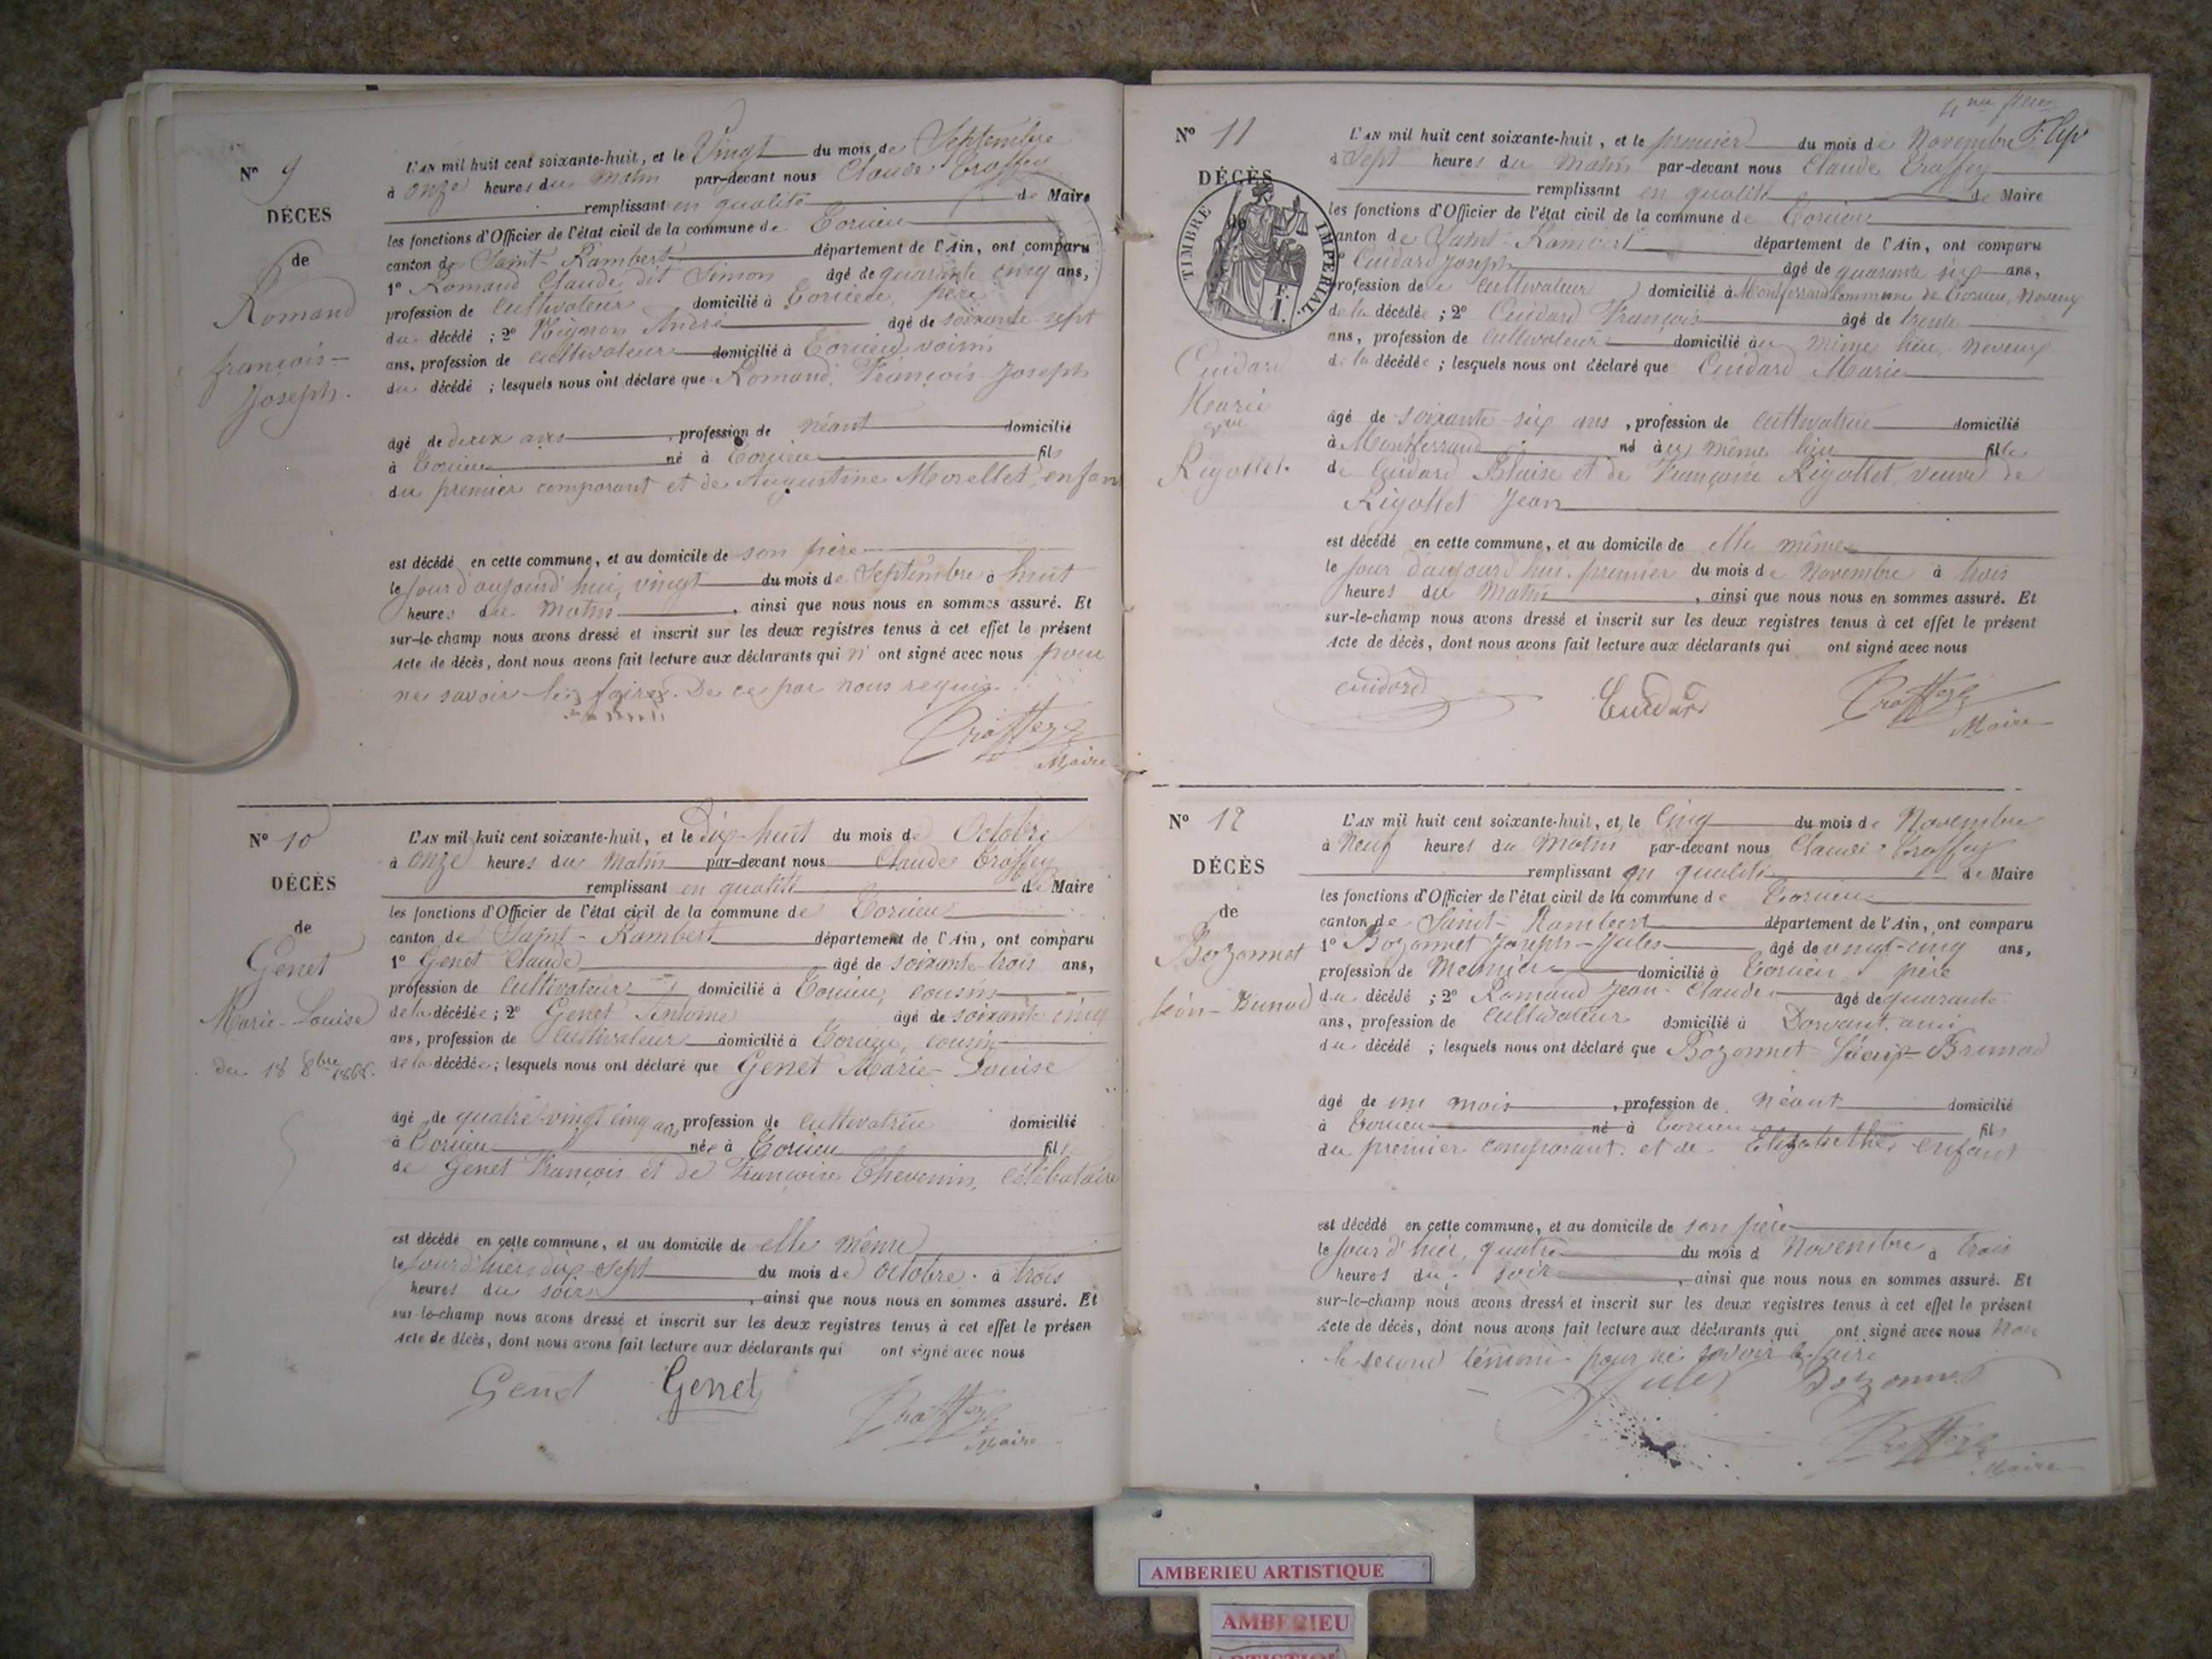 N° 9
DÉCES
de
Romand
françois-
Joseph.
L'AN mil huit cent soixante-huit, et le Vingt du mois de Septembre
à onze heures du matin par-devant nous Claude Troffey
remplissant en qualité de Maire
les fonctions d'Officier de l'état civil de la commune de Torcieu
canton de Saint-Rambert département de l'Ain, ont comparu
1° Romand Claude dit Simon âgé de quarante cinq ans,
profession de cultivateur domicilié à Torcieu, père
du décédé ; 2° André âgé de soixante sept
ans, profession de cultivateur domicilié à Torcieu, voisin
du décédé ; lesquels nous ont déclaré que Romand, François Joseph
âgé de deux ans , profession de néant domicilié
à Torcieu né à Torcieu fils
du premier comparant et de Augustine Morellet, enfan
est décédé en cette commune, et au domicile de son père
le jour d'aujourd'hui, vingt du mois de Septembre à huit
heures du matin , ainsi que nous nous en sommes assuré. Et
sur-le-champ nous avons dressé et inscrit sur les deux registres tenus à cet effet le présent
Acte de décès, dont nous avons fait lecture aux déclarants qui n' ont signé avec nous pour
ne savoir le faire. De ce par nous requis
Troffey
Maire
N° 10
DÉCÈS
de
Genet
Marie-Louise
du 18 8bre 1868.
L'AN mil huit cent soixante-huit, et le dix-huit du mois de Octobre
à onze heures du matin par-devant nous Claude Troffey
remplissant en qualité de Maire
les fonctions d'Officier de l'état civil de la commune de Torcieu
canton de Saint-Rambert département de l'Ain, ont comparu
1° Genet Claude âgé de soixante trois ans,
profession de cultivateur domicilié à Torcieu, cousin
de la décédée ; 2° Genet Antoine âgé de soixante cinq
ans, profession de cultivateur domicilié à Torcieu, cousin
de la décédée ; lesquels nous ont déclaré que Genet Marie-Louise
âgé de quatre-vingt cinq ans profession de cultivatrice domicilié
à Torcieu née à Torcieu fil
de Genet François et de Françoise Thevenin, célibataire
est décédé en cette commune, et au domicile de elle même
le jour d'hier dix-sept du mois de octobre à trois
heures du soir , ainsi que nous nous en sommes assuré. Et
sur-le-champ nous avons dressé et inscrit sur les deux registres tenus à cet effet le présen
Acte de décès, dont nous avons fait lecture aux déclarants qui ont signé avec nous
Genet Genet
Troffey
Maire
N° 11
DÉCÈS
de
TIMBRE IMPERIAL.
F.
1.
Cuidard
Marie
Rigollet.
L'AN mil huit cent soixante-huit, et le premier du mois de Novembre
à Sept heures du matin par-devant nous Claude Troffey
remplissant en qualité de Maire
les fonctions d'Officier de l'état civil de la commune de Torcieu
canton de Saint-Rambert département de l'Ain, ont comparu
Cuidard Joseph âgé de quarante six ans,
profession de cultivateur domicilié à Montferrand Commune de Torcieu, neveux
de la décédée ; 2° Cuidard François âgé de trente
ans, profession de cultivateur domicilié au même lieu, neveux
de la décédée ; lesquels nous ont déclaré que Cuidard Marie
âgé de soixante six ans , profession de cultivatrice domicilié
à Montferrand né au même lieu fille
de Cuidard Blaise et de Françoise Rigollet, veuve de
Rigollet Jean
est décédé en cette commune, et au domicile de elle même
le jour d'aujourd'hui, premier du mois de Novembre à trois
heures du matin , ainsi que nous nous en sommes assuré. Et
sur-le-champ nous avons dressé et inscrit sur les deux registres tenus à cet effet le présent
Acte de décès, dont nous avons fait lecture aux déclarants qui ont signé avec nous
cuidard Cuidard Troffey
Maire
N° 12
DÉCÈS
de
Bozonnet
L'AN mil huit cent soixante-huit, et le Cinq du mois de Novembre
à Neuf heures du Matin par-devant nous Claude Troffey
remplissant en qualité de Maire
les fonctions d'Officier de l'état civil de la commune de Torcieu
canton de Saint-Rambert département de l'Ain, ont comparu
1° Bozonnet Joseph-Jules âgé de vingt-cinq ans,
profession de Meunier domicilié à Torcieu, père
du décédé ; 2° Romand Jean-Claude âgé de quarante
ans, profession de cultivateur domicilié à Dorvant, ami
du décédé ; lesquels nous ont déclaré que Bozonnet
âgé de un mois , profession de Néant domicilié
à Torcieu né à Torcieu fils
du premier comparant et de Elizabeth enfant
est décédé en cette commune, et au domicile de son père
le jour d'hier, quatre du mois d Novembre à trois
heures du soir , ainsi que nous nous en sommes assuré. Et
sur-le-champ nous avons dressé et inscrit sur les deux registres tenus à cet effet le présent
Acte de décès, dont nous avons fait lecture aux déclarants qui ont signé avec nous Non
le second témoin pour ne savoir le faire
Jules Bozonnet
Troffey
Maire
AMBERIEU ARTISTIQUE
AMBERIEU
ARTISTIQUE